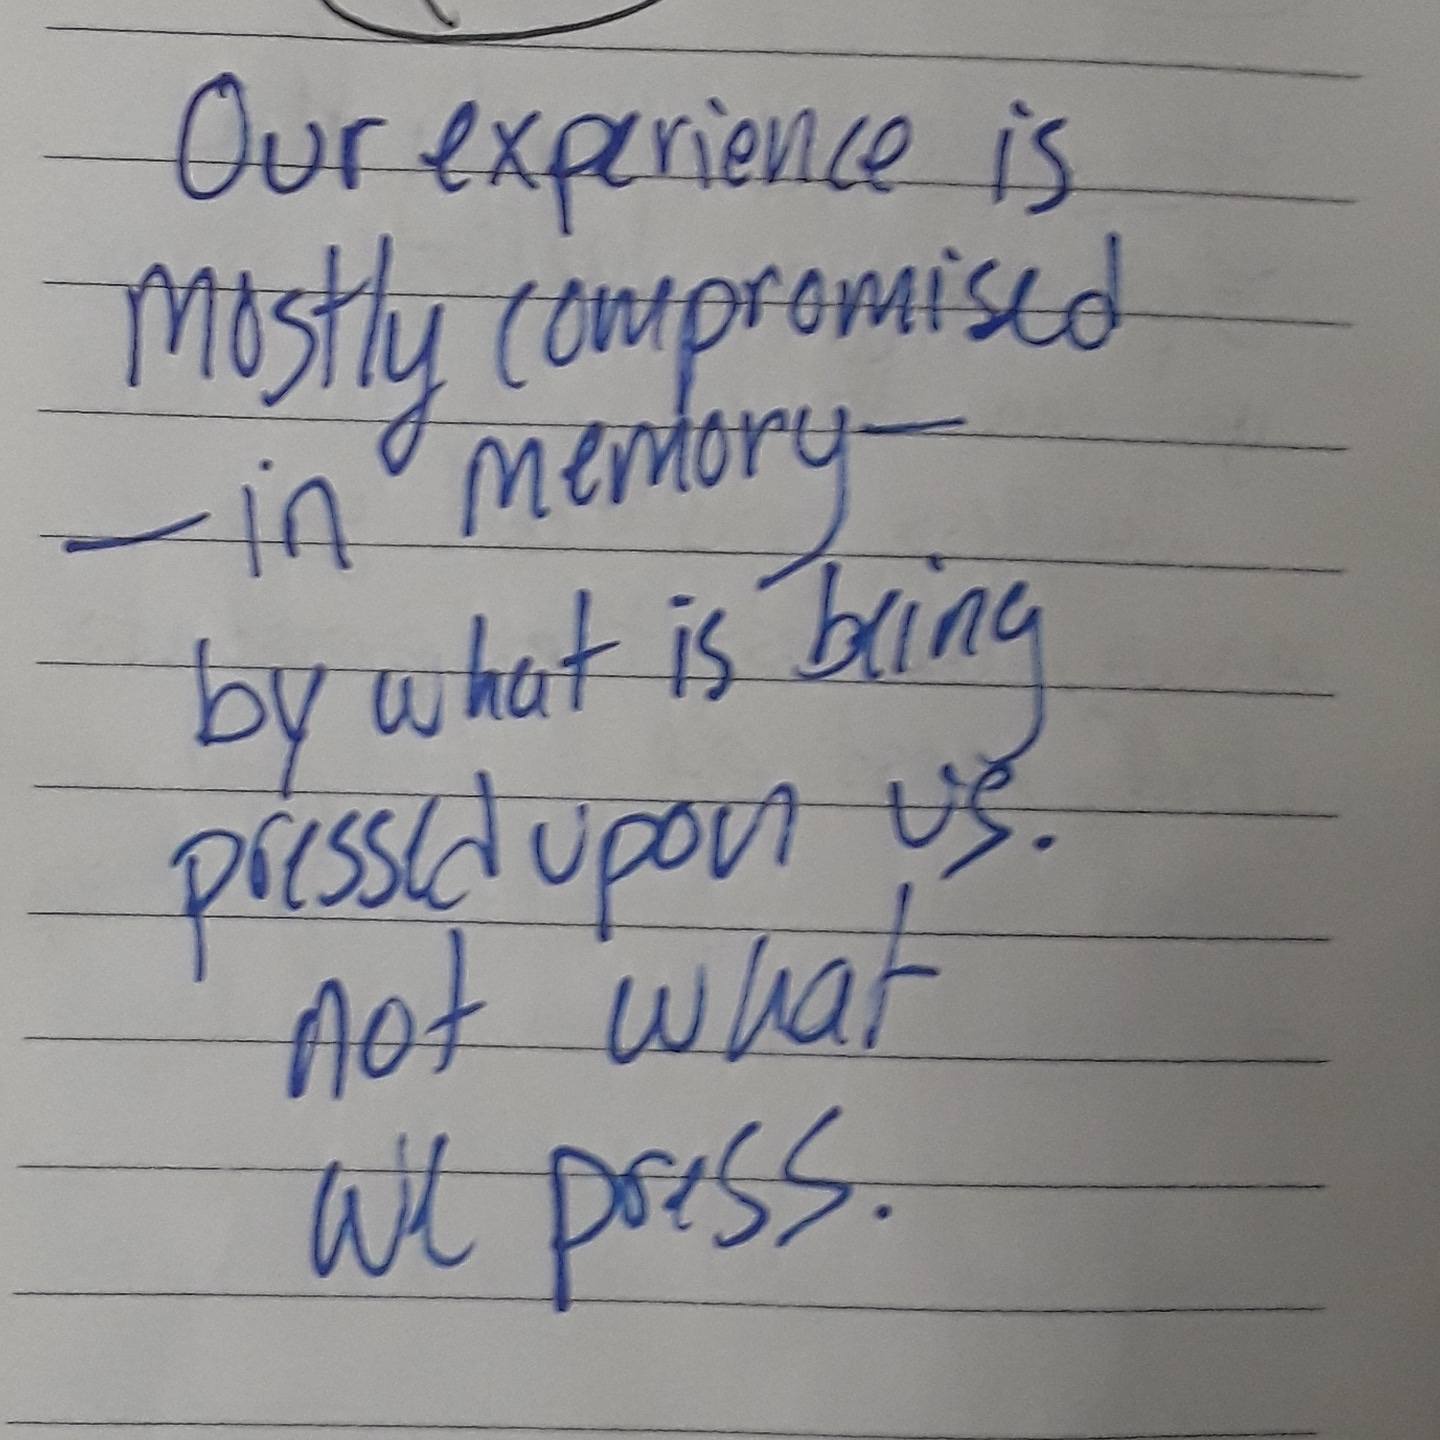 Our experience is
mostly compromised
— in memory —
by what is being
pressed upon us.
not what
we press.